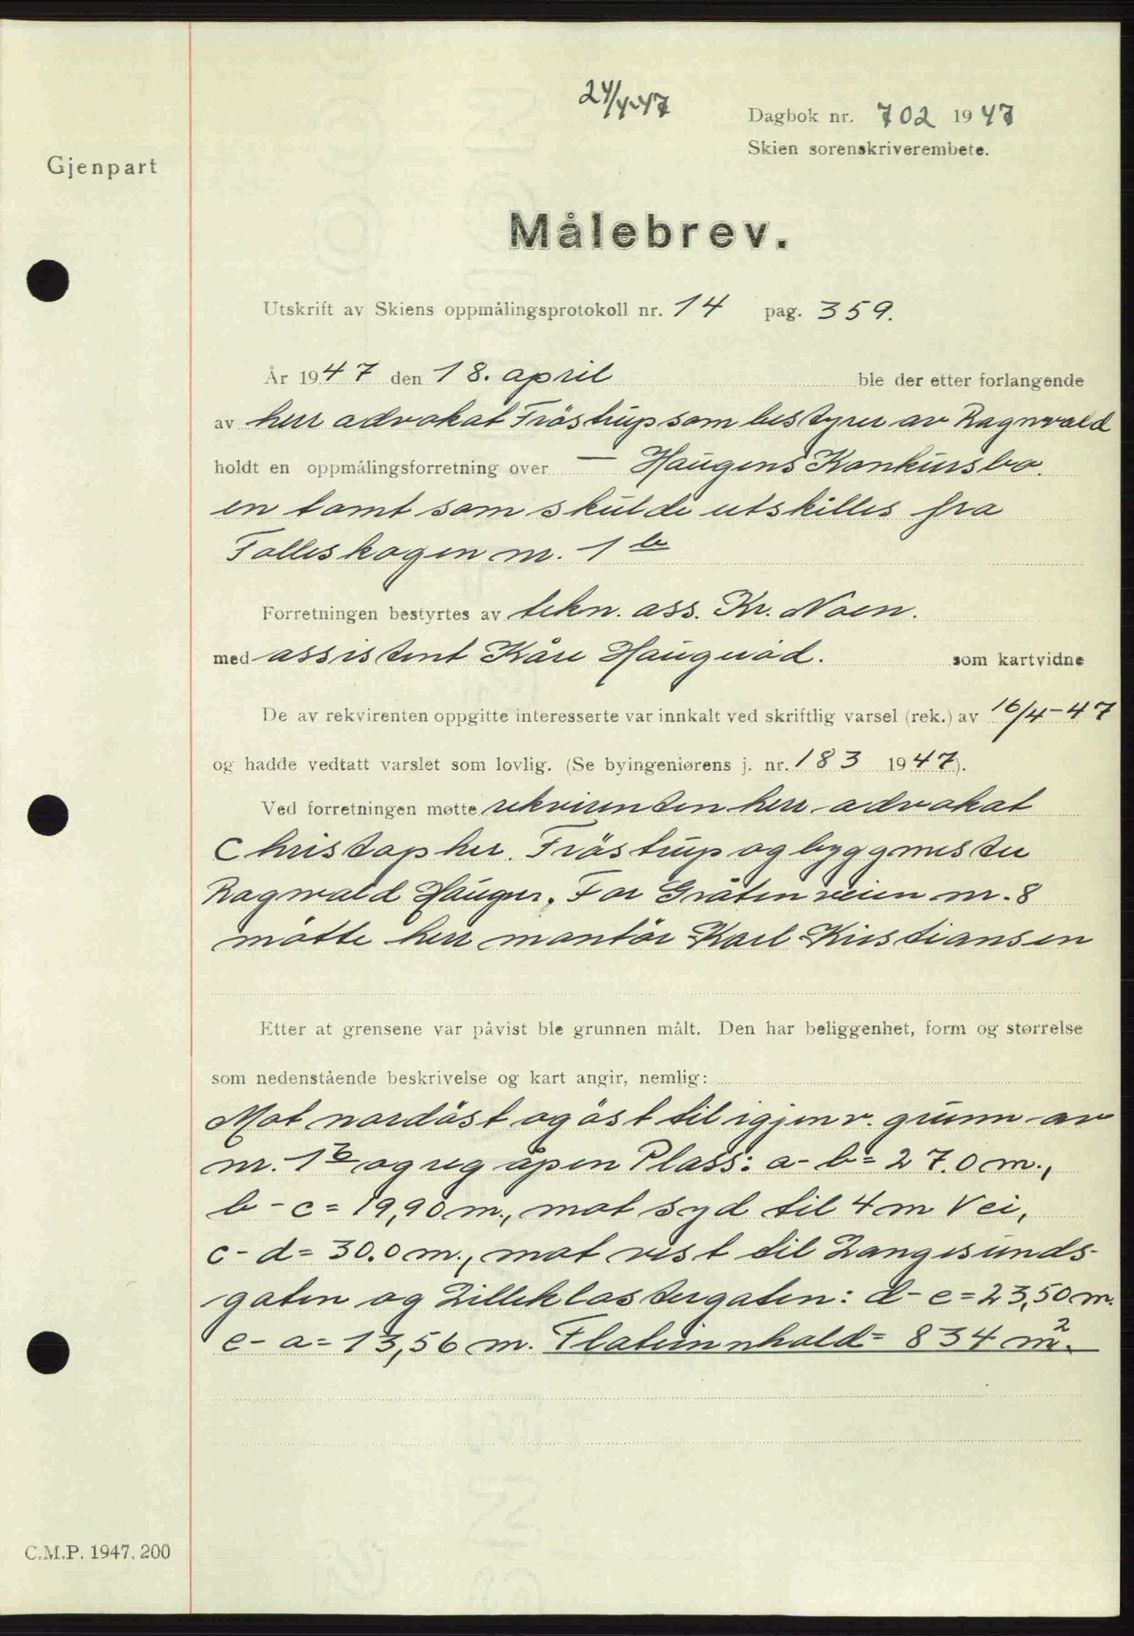 24/4-47
Dagbok nr. 702 1947
Skien sorenskriverembete.
Gjenpart
Målebrev.
Utskrift av Skiens oppmålingsprotokoll nr. 14 pag. 359.
År 1947 den 18. april ble der etter forlangende
av herr advokat Fröstrup som bestyrer av Ragnvald
holdt en oppmålingsforretning over — Haugens Konkursbo.
en tomt som skulde utskilles fra
Falleskogen nr. 1 b
Forretningen bestyrtes av tekn. ass. Kr. Noen.
med assistent Kåre Haugerød. som kartvidne
De av rekvirenten oppgitte interesserte var innkalt ved skriftlig varsel (rek.) av 16/4-47
og hadde vedtatt varslet som lovlig. (Se byingeniørens j. nr. 183 1947).
Ved forretningen møtte rekvirenten herr advokat
Christopher Fröstrup og byggmester
Ragnvald Haugen. For Gråtenveien nr. 8
møtte herr montör Karl Kristiansen
Etter at grensene var påvist ble grunnen målt. Den har beliggenhet, form og størrelse
som nedenstående beskrivelse og kart angir, nemlig:
Mot nordöst og öst til igjenv. grunn av
nr. 1b og reg åpen Plass: a-b = 27.0 m.,
b-c = 19,90 m., mot syd til 4 m Vei,
c-d = 30.0 m., mot vest til Langesunds-
gaten og Lilleklostergaten: d-e = 23,50 m.
e-a = 13,56 m. Flateinnhold = 834 m2.
C.M.P. 1947. 200